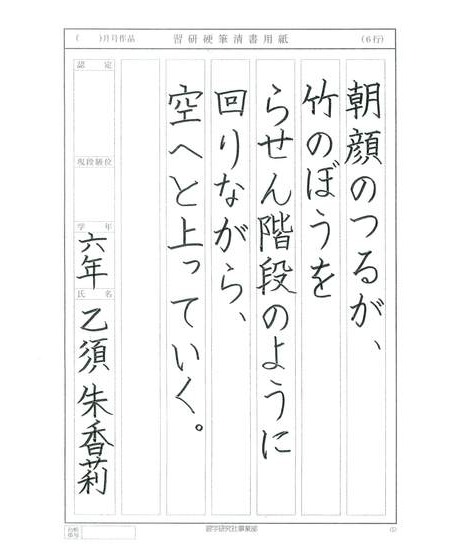 ( )月号作品 習研硬筆清書用紙 (6行)
朝顔のつるが、
竹のぼうを
らせん階段のように
回りながら、
空へと上っていく。
認定
現段級位
学年
六年
氏名
乙須朱香莉
習字研究社事業部